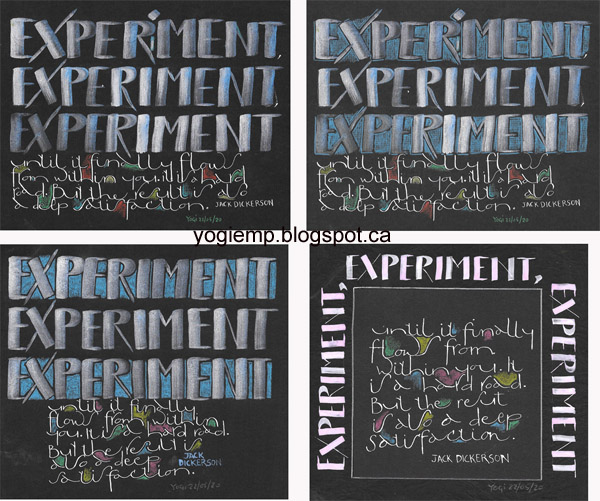 EXPERIMENT,
EXPERIMENT,
EXPERIMENT
until it finally flows
from within you. It is a hard
road. But the result is also
a deep satisfaction. JACK DICKERSON
Yogi 22/05/20
EXPERIMENT,
EXPERIMENT,
EXPERIMENT
until it finally flows
from within you. It is a hard
road. But the result is also
a deep satisfaction. JACK DICKERSON
Yogi 22/05/20
yogiemp.blogspot.ca
EXPERIMENT
EXPERIMENT
EXPERIMENT
until it finally
flows from within
you. It is a hard road.
But the result is
also a deep
satisfaction.
JACK
DICKERSON
Yogi 22/05/20
EXPERIMENT,
EXPERIMENT,
EXPERIMENT
until it finally
flows from
within you. It
is a hard road.
But the result
is also a deep
satisfaction.
JACK DICKERSON
Yogi 22/05/20